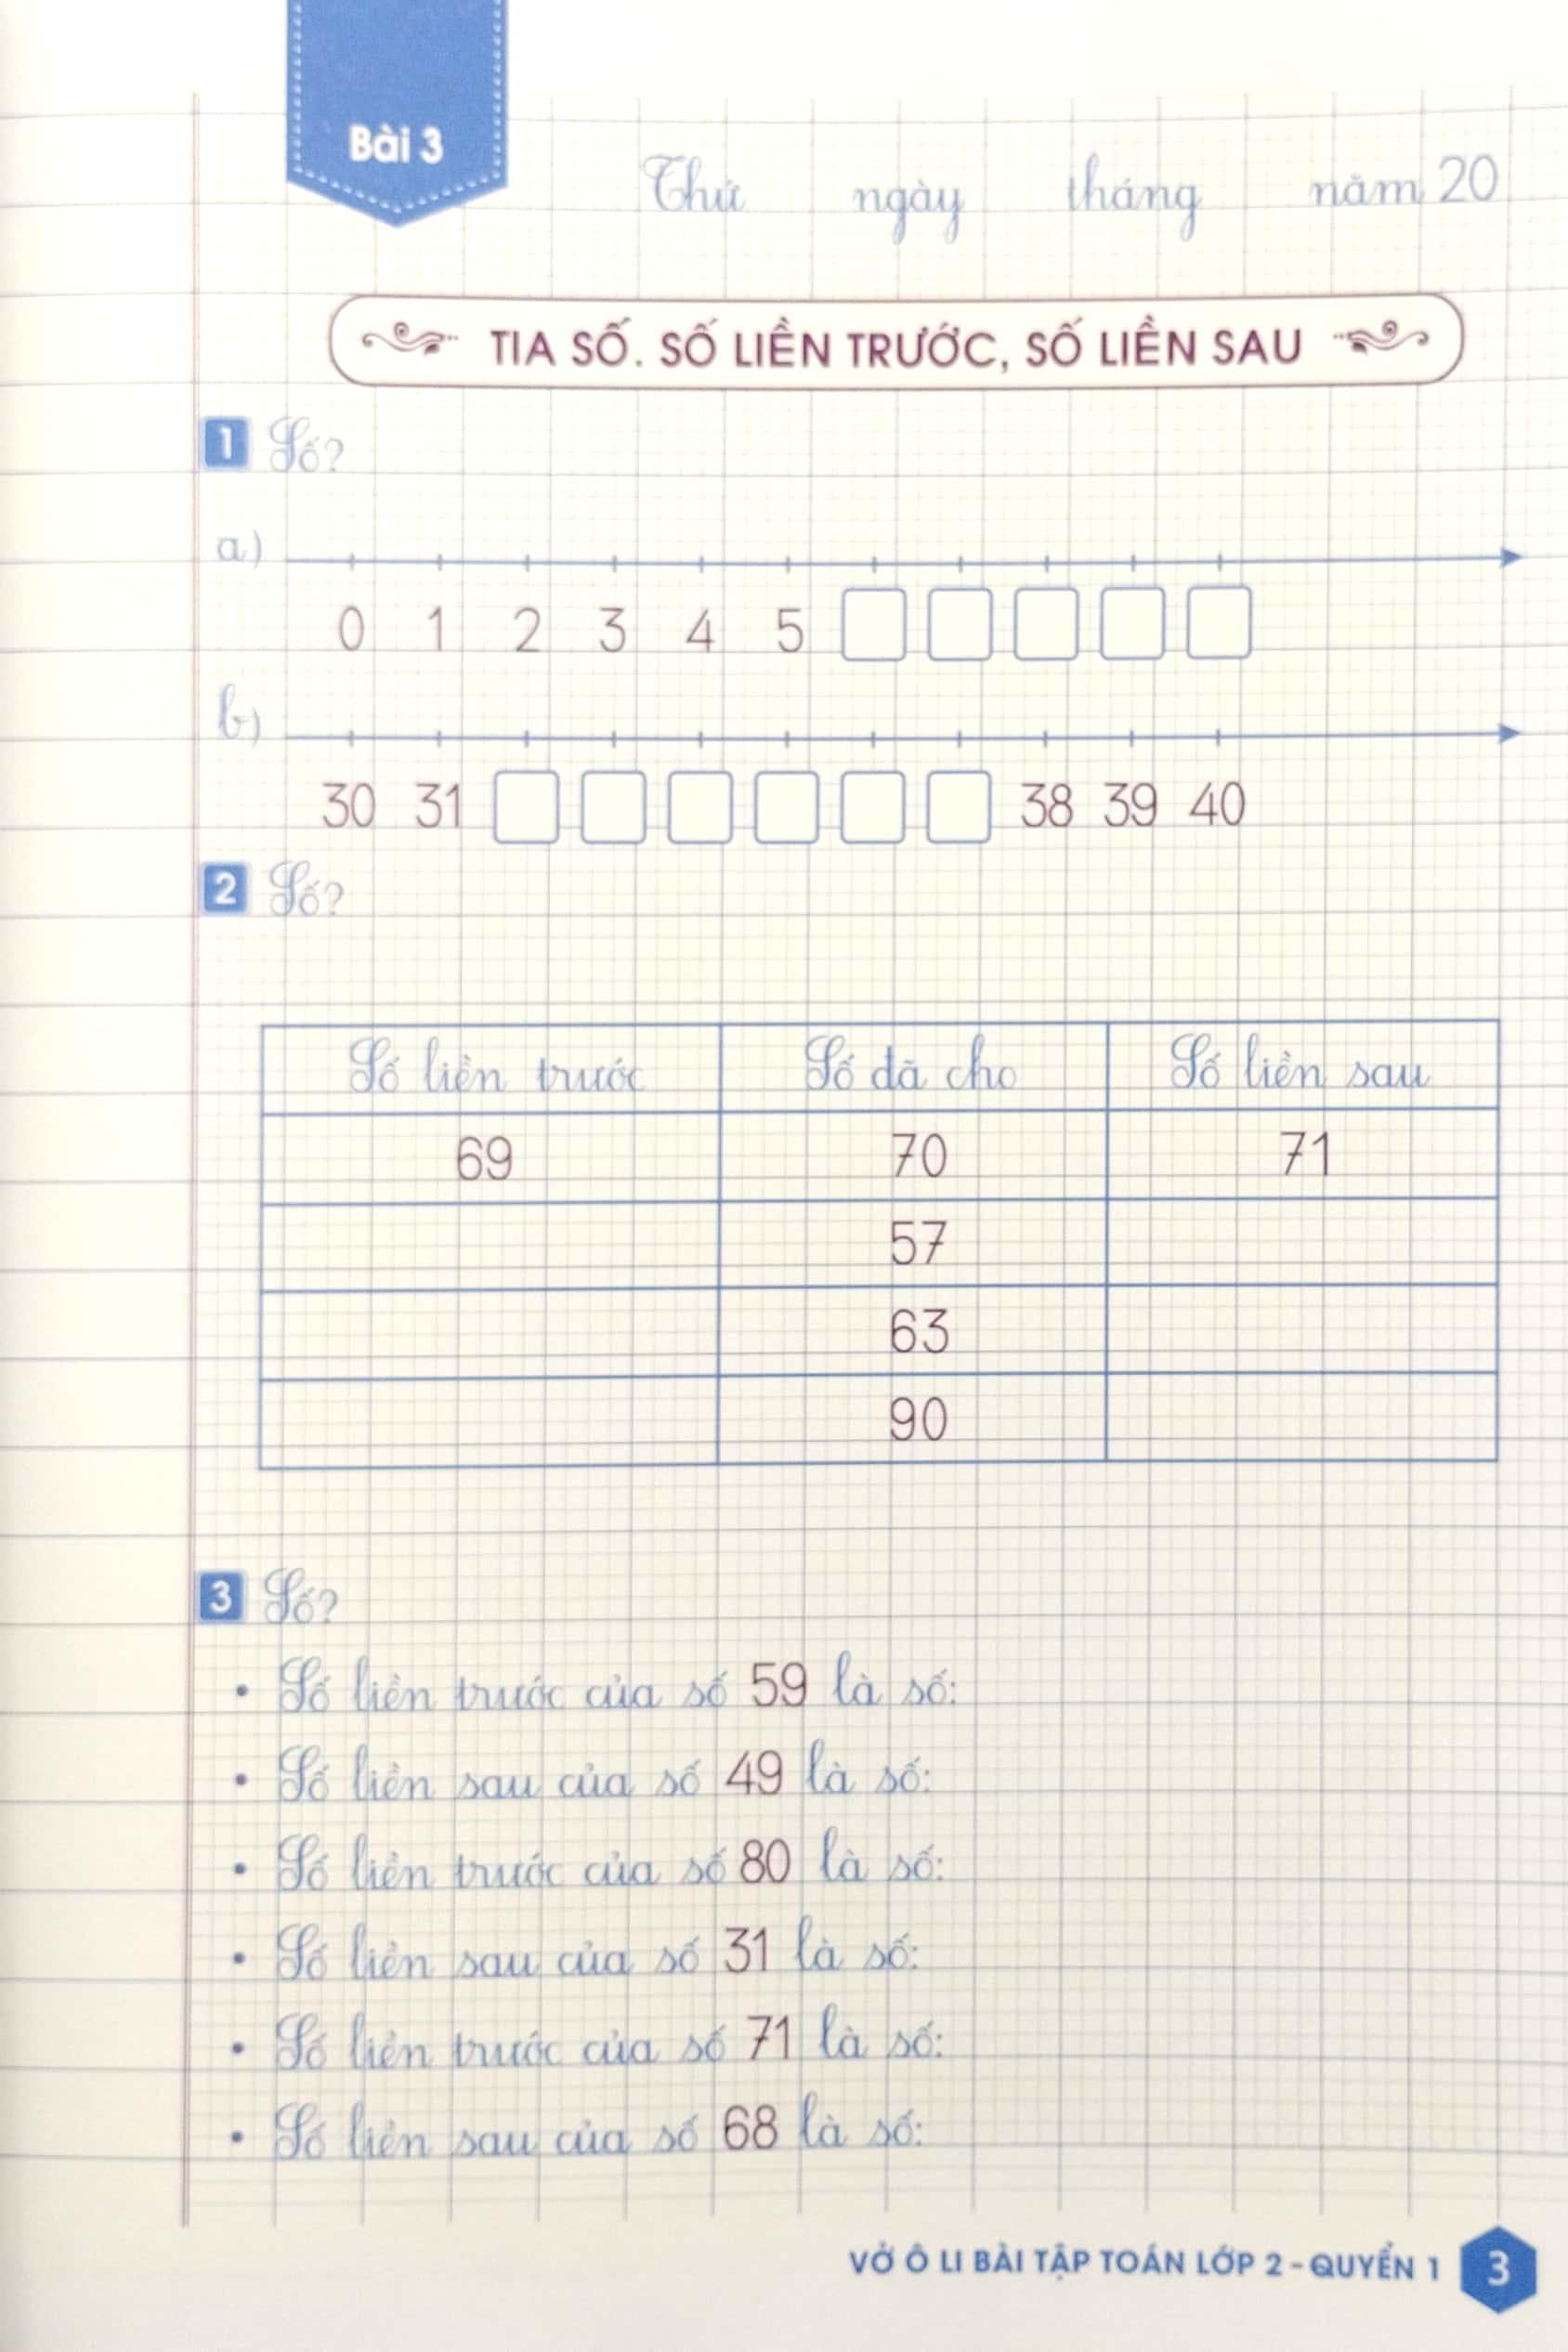 Bài 3
Thứ ngày tháng năm 20
TIA SỐ. SỐ LIỀN TRƯỚC, SỐ LIỀN SAU
1 Số?
a)
0 1 2 3 4 5
b)
30 31 38 39 40
2 Số?
Số liền trước Số đã cho Số liền sau
69 70 71
57
63
90
3 Số?
• Số liền trước của số 59 là số:
• Số liền sau của số 49 là số:
• Số liền trước của số 80 là số:
• Số liền sau của số 31 là số:
• Số liền trước của số 71 là số:
• Số liền sau của số 68 là số:
VỞ Ô LI BÀI TẬP TOÁN LỚP 2 - QUYỂN 1 3